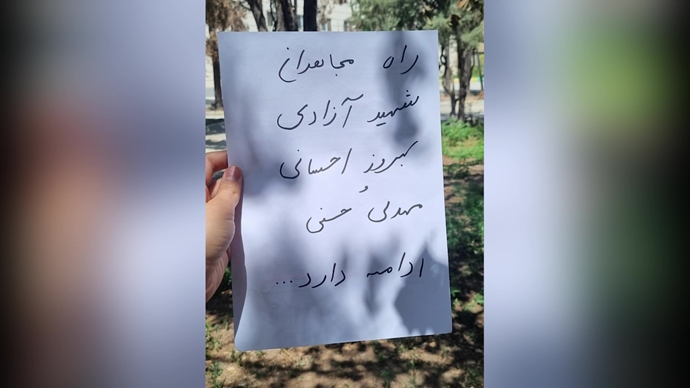 راه مجاهدان
شهید آزادی
بهروز احسانی
و
مهدی حسنی
ادامه دارد...